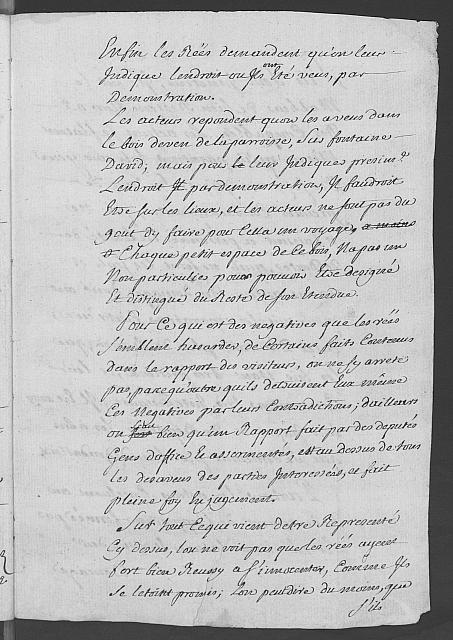 Enfin les Réés demandent qu'on leur
Indique lendroit ou Ils ont Eté veus, par
Demonstration.
Les acteurs repondent quon les a veus dans
le bois deven de la parroisse, sus fontaine
David; mais pour le leur Indiquer
Lendroit par demonstration, Il faudroit
Etre sur les lieux, et les acteurs ne sont pas du
gout dy faire pour Cella un voyage, a moins
& Chaque petit espace de Ce bois, Na pas un
Nom particulier pour pouvoir Etre designé
Et distingué du Reste de son Etendue.
Pour Ce qui est des negatives que les réés
semblent husarder, de Certains faits Contenus
dans le rapport des visiteurs, on ne sy arrete
pas, parcequ'outre quils detruisent Eux même
Ces Negatives par leurs Contradictions; dailleurs
on sçait bien qu'un Rapport fait par des deputés
Gens d'office & assermentés, est au dessus de tous
les desaveus des parties Interessées, et fait
pleine foy En jugement.
Sur tout Ce qui vient detre Representé
Cy dessus, lon ne voit pas que les réés ayent
fort bien Reussy a s'innocenter, Comme Ils
se letoint promis; Lon peut dire du moins, que
s'ils